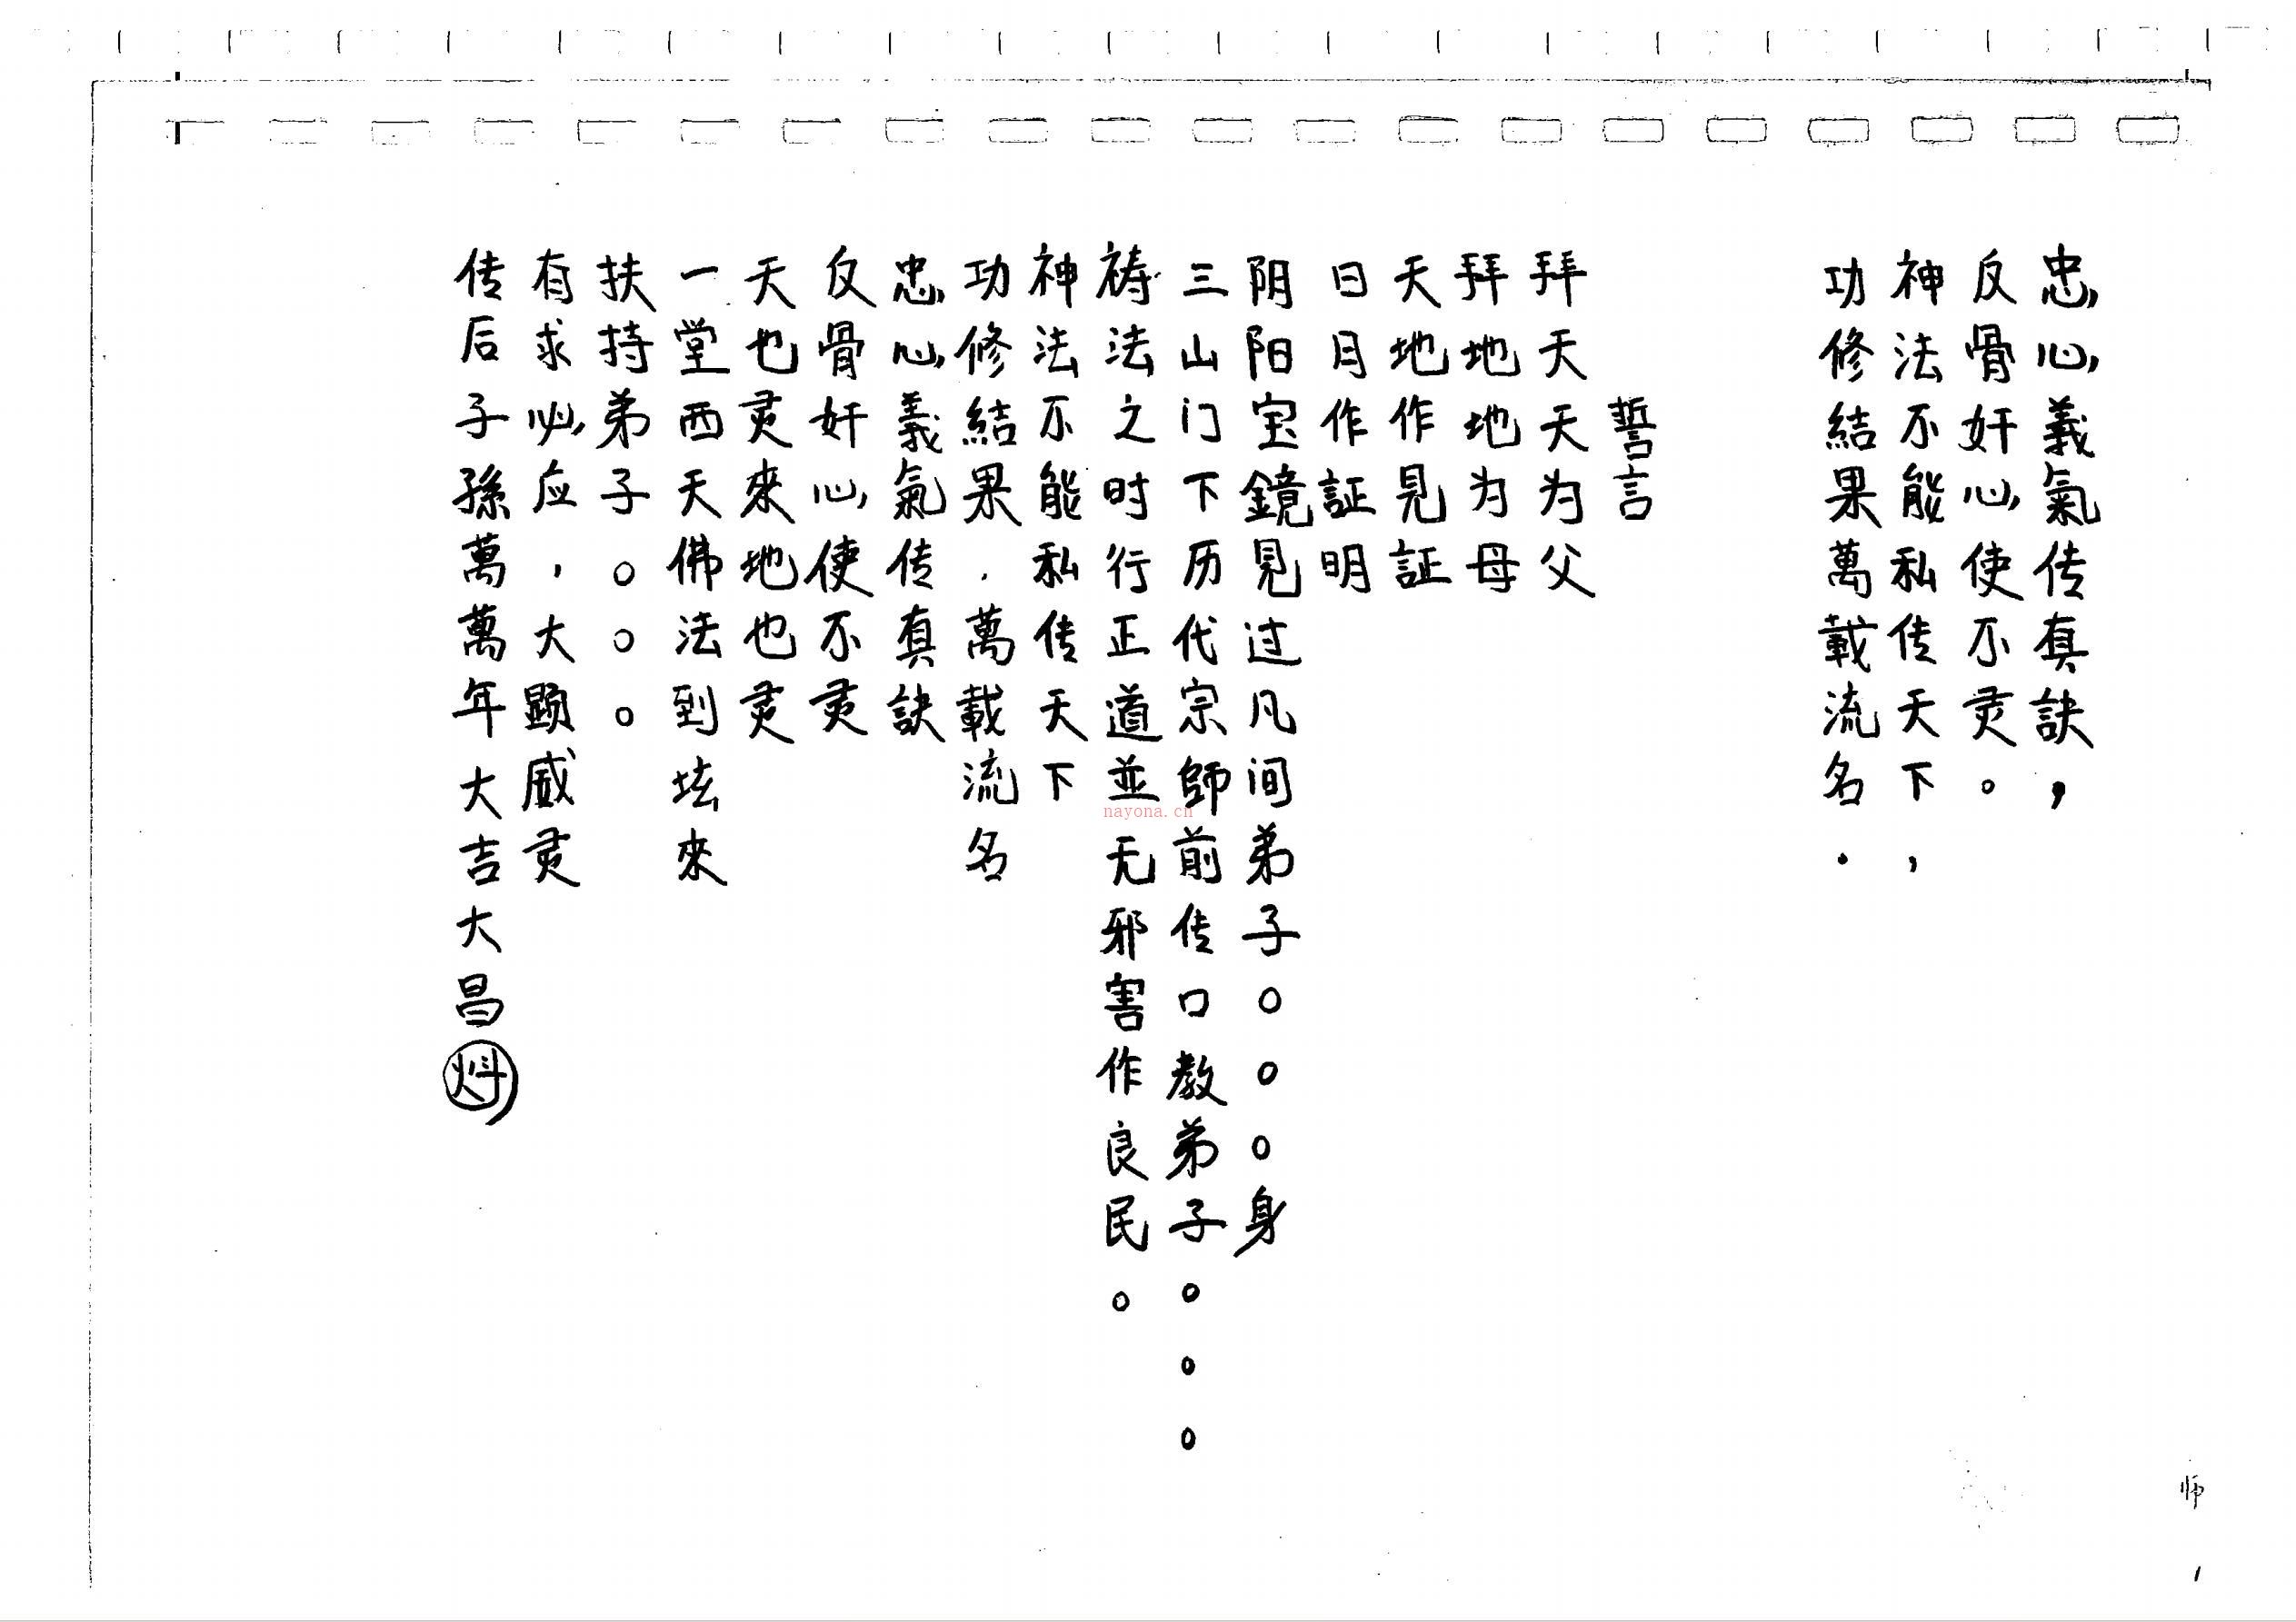 忠心義氣传真訣，
反骨奸心使不灵。
神法不能私传天下，
功修結果萬載流名．
誓言
拜天天为父
拜地地为母
天地作見証
日月作証明
阴阳宝鏡見过凡间弟子○○○身
三山门下历代宗師前传口教弟子○○○
祷法之时行正道並无邪害作良民。
神法不能私传天下
功修結果．萬載流名
忠心義氣传真訣
反骨奸心使不灵
天也灵來地也灵
一堂西天佛法到坛來
扶持弟子○○○
有求必应，大顕威灵
传后子孫萬萬年大吉大昌
师
1
nayona.cn